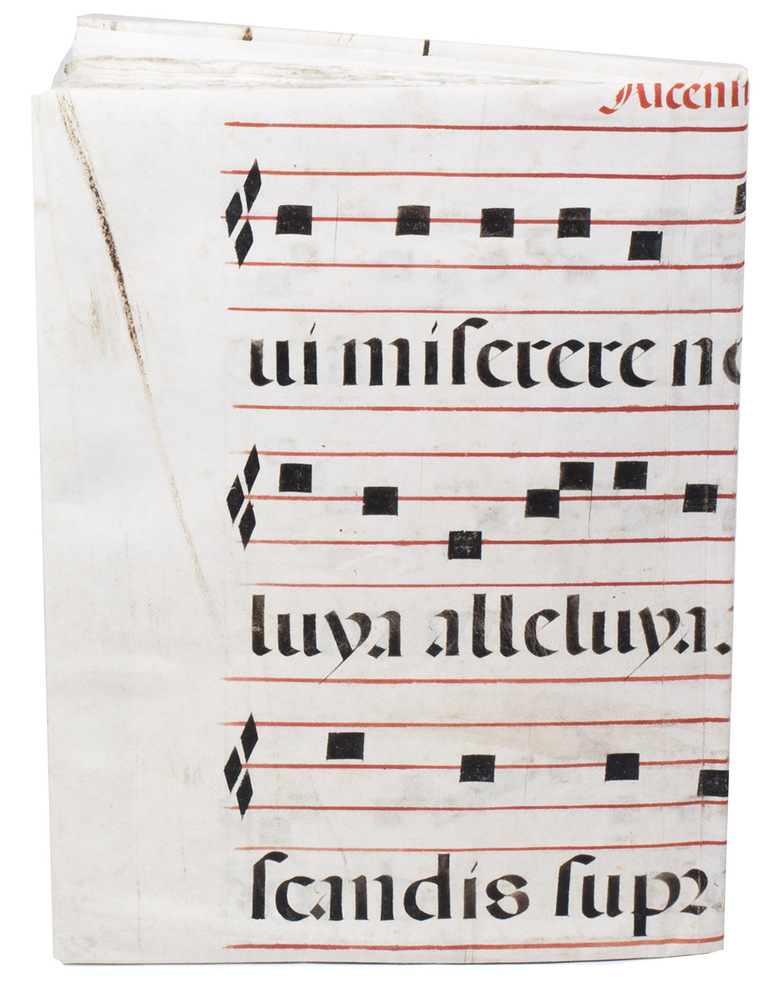 Ascen
ui miserere no
luya alleluya.
scandis supr